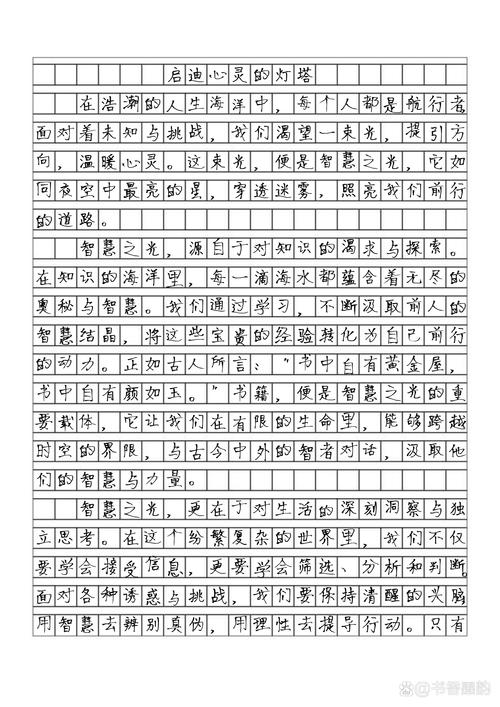 启迪心灵的灯塔
在浩瀚的人生海洋中，每个人都是航行者
面对着未知与挑战，我们渴望一束光，提引方
向，温暖心灵。这束光，便是智慧之光，它如
同夜空中最亮的星，穿透迷雾，照亮我们前行
的道路。
智慧之光，源自于对知识的渴求与探索。
在知识的海洋里，每一滴海水都蕴含着无尽的
奥秘与智慧。我们通过学习，不断汲取前人的
智慧结晶，将这些宝贵的经验转化为自己前行
的动力。正如古人所言："书中自有黄金屋，
书中自有颜如玉。"书籍，便是智慧之光的重
要载体，它让我们在有限的生命里，能够跨越
时空的界限，与古今中外的智者对话，汲取他
们的智慧与力量。
智慧之光，更在于对生活的深刻洞察与独
立思考。在这个纷繁复杂的世界里，我们不仅
要学会接受信息，更要学会筛选、分析和判断。
面对各种诱惑与挑战，我们要保持清醒的头脑
用智慧去辨别真伪，用理性去提导行动。只有